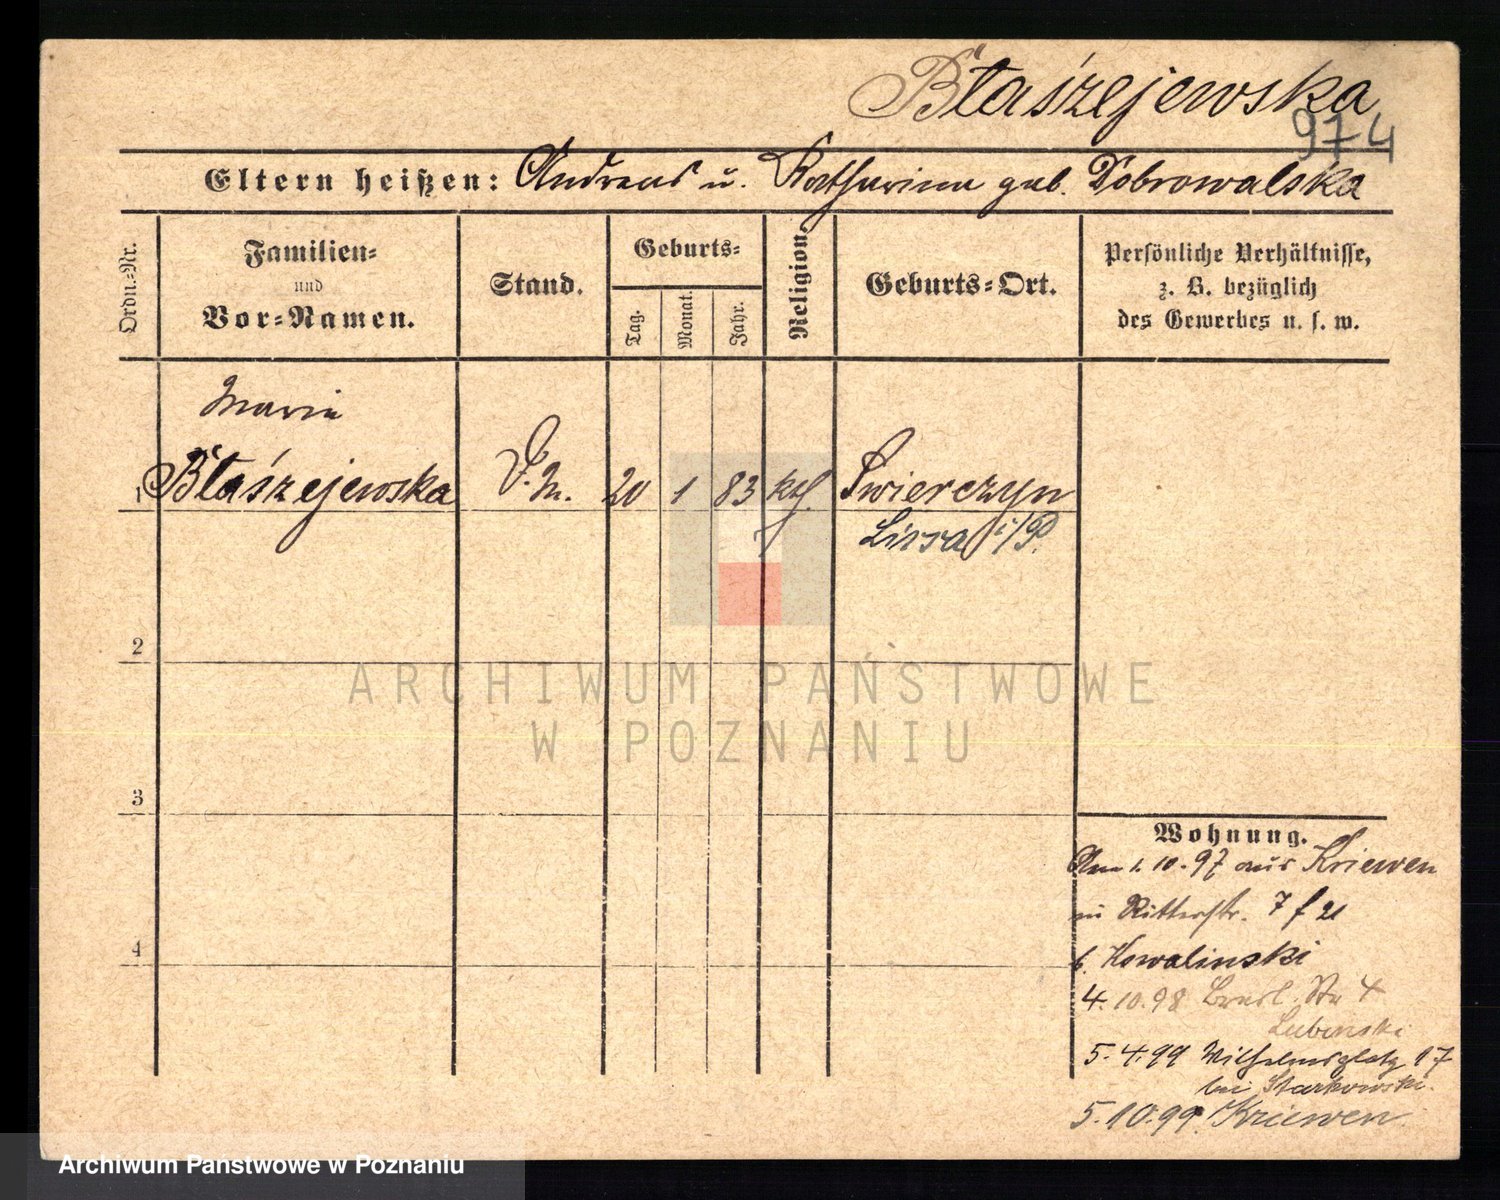 Błaśzejewska
974
Eltern heißen: Andreas u. Katharina geb. Dobrowalska
Ordn.-Nr.
Familien-
und
Vor-Namen.
Stand.
Geburts-
Tag.
Monat.
Jahr.
Religion.
Geburts-Ort.
Persönliche Verhältnisse,
z. B. bezüglich
des Gewerbes u. s. w.
Maria
1 Błaśzejewska D. M. 20 1 83 kth. Swierczyn
Lissa i/P.
2
3
4
ARCHIWUM PAŃSTWOWE
W POZNANIU
Wohnung.
Am 1. 10. 97 aus Kriewen
in Ritterstr. 7 f 21
b. Kowalinski
4. 10. 98 Bresl. Str 4
Lubinski
5. 4. 99 Wilhelmsplatz 17
bei Starkowski.
5. 10. 99. Kriewen
Archiwum Państwowe w Poznaniu